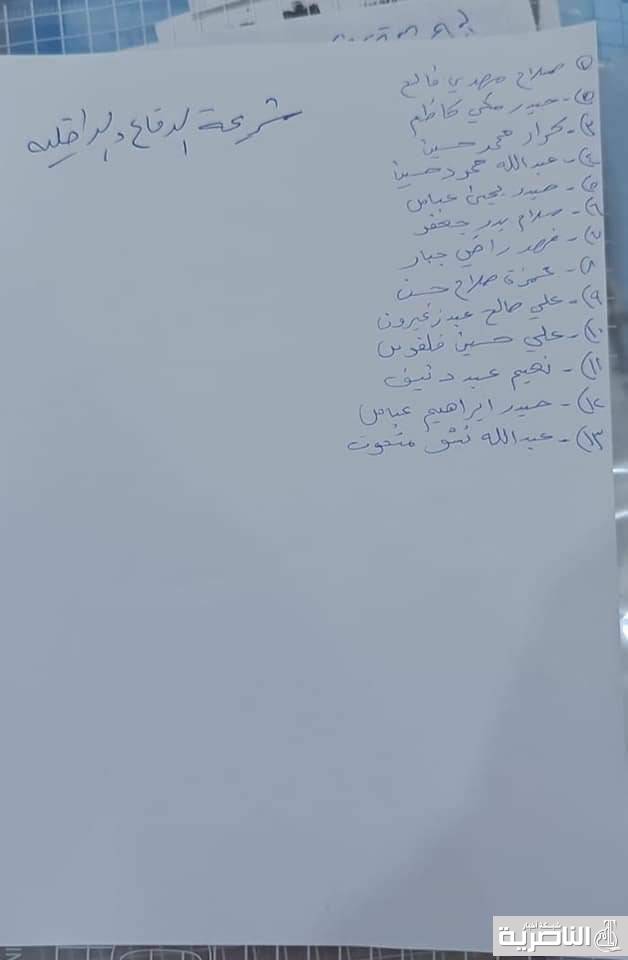 شريحة الدفاع والداخليه
١) صلاح مهدي فالح
٢) - حيدر مكي كاظم
٣) - كرار محمد حسين
٤) - عبدالله محمود حسين
٥) - حيدر يحيى عباس
٦) - سلام بدر جعفر
٧) - فهد راضي جبار
٨) - حمزة صلاح حسن
٩) - علي صالح عبد زغيرون
١٠) - علي حسين
١١) - نعيم عبد
١٢) - حيدر ابراهيم عباس
١٣) - عبدالله
شبكة اخبار
الناصرية